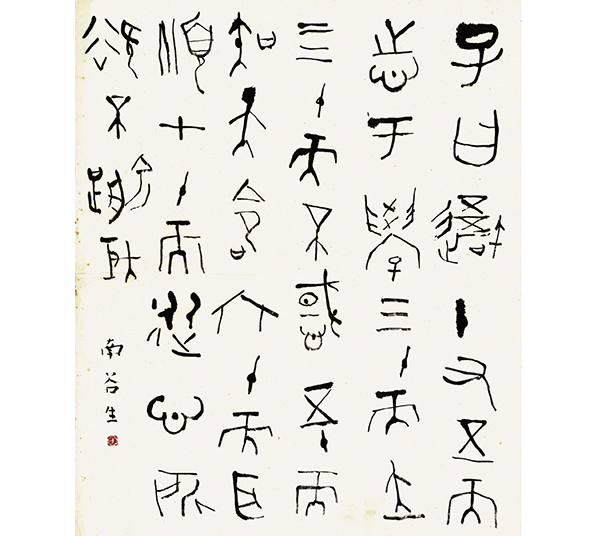 子曰吾十又五而
志于學三十而立
四十而不惑五十而
知天命六十而耳
順七十而從心所
欲不踰矩
南谷生